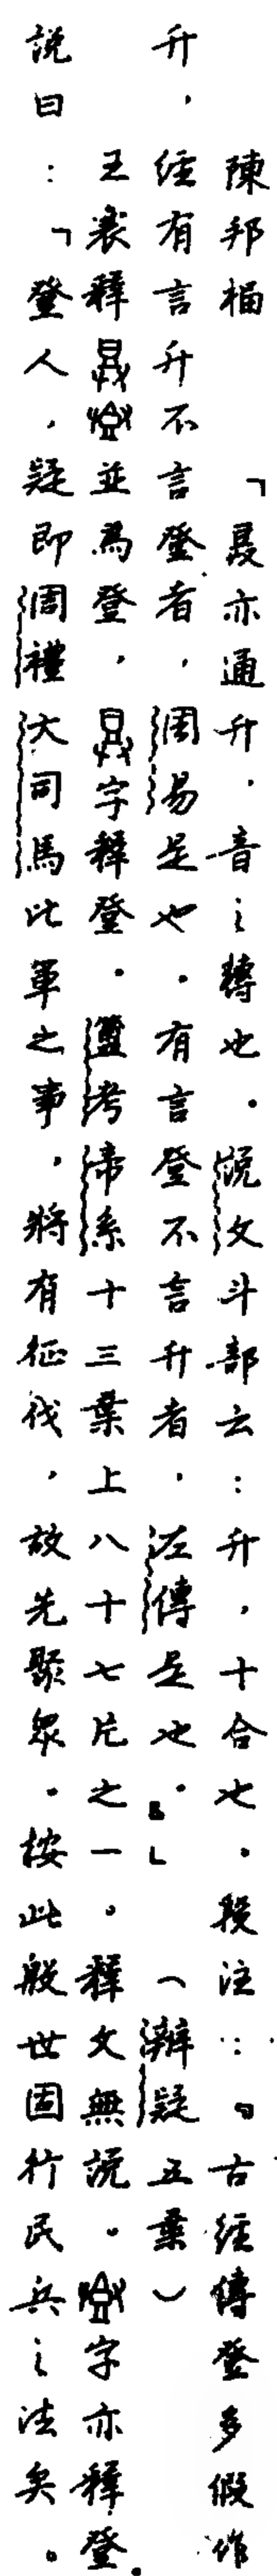 陳邦楅「𢍰亦通升,音之轉也。説文斗部云:升,十合也。段注:『古經傳登多假作
升,經有言升不言登者,周易是也。有言登不言升者,左傳是也。』」(辨疑五葉)
王襄釋並為登,字釋登。簠考帝系十三葉上八十七片之一。釋文無説。字亦釋登。
説曰:「登人,疑即周禮大司馬比軍之事,將有征伐,故先聚衆。按此殷世固行民兵之法矣。